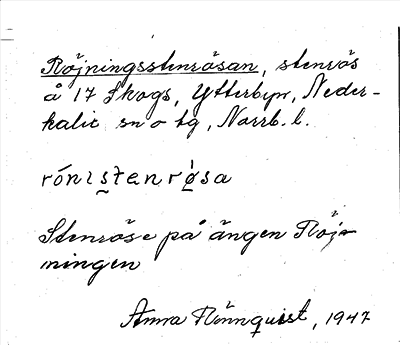 Röjningsstenrösan, stenrös
å 17 Skogs, Ytterbyn, Neder-
kalix sn o tg, Norrb. l.
rónıs̱tenrø̀sa
Stenröse på ängen Röj-
ningen
Anna Rönnquist, 1947